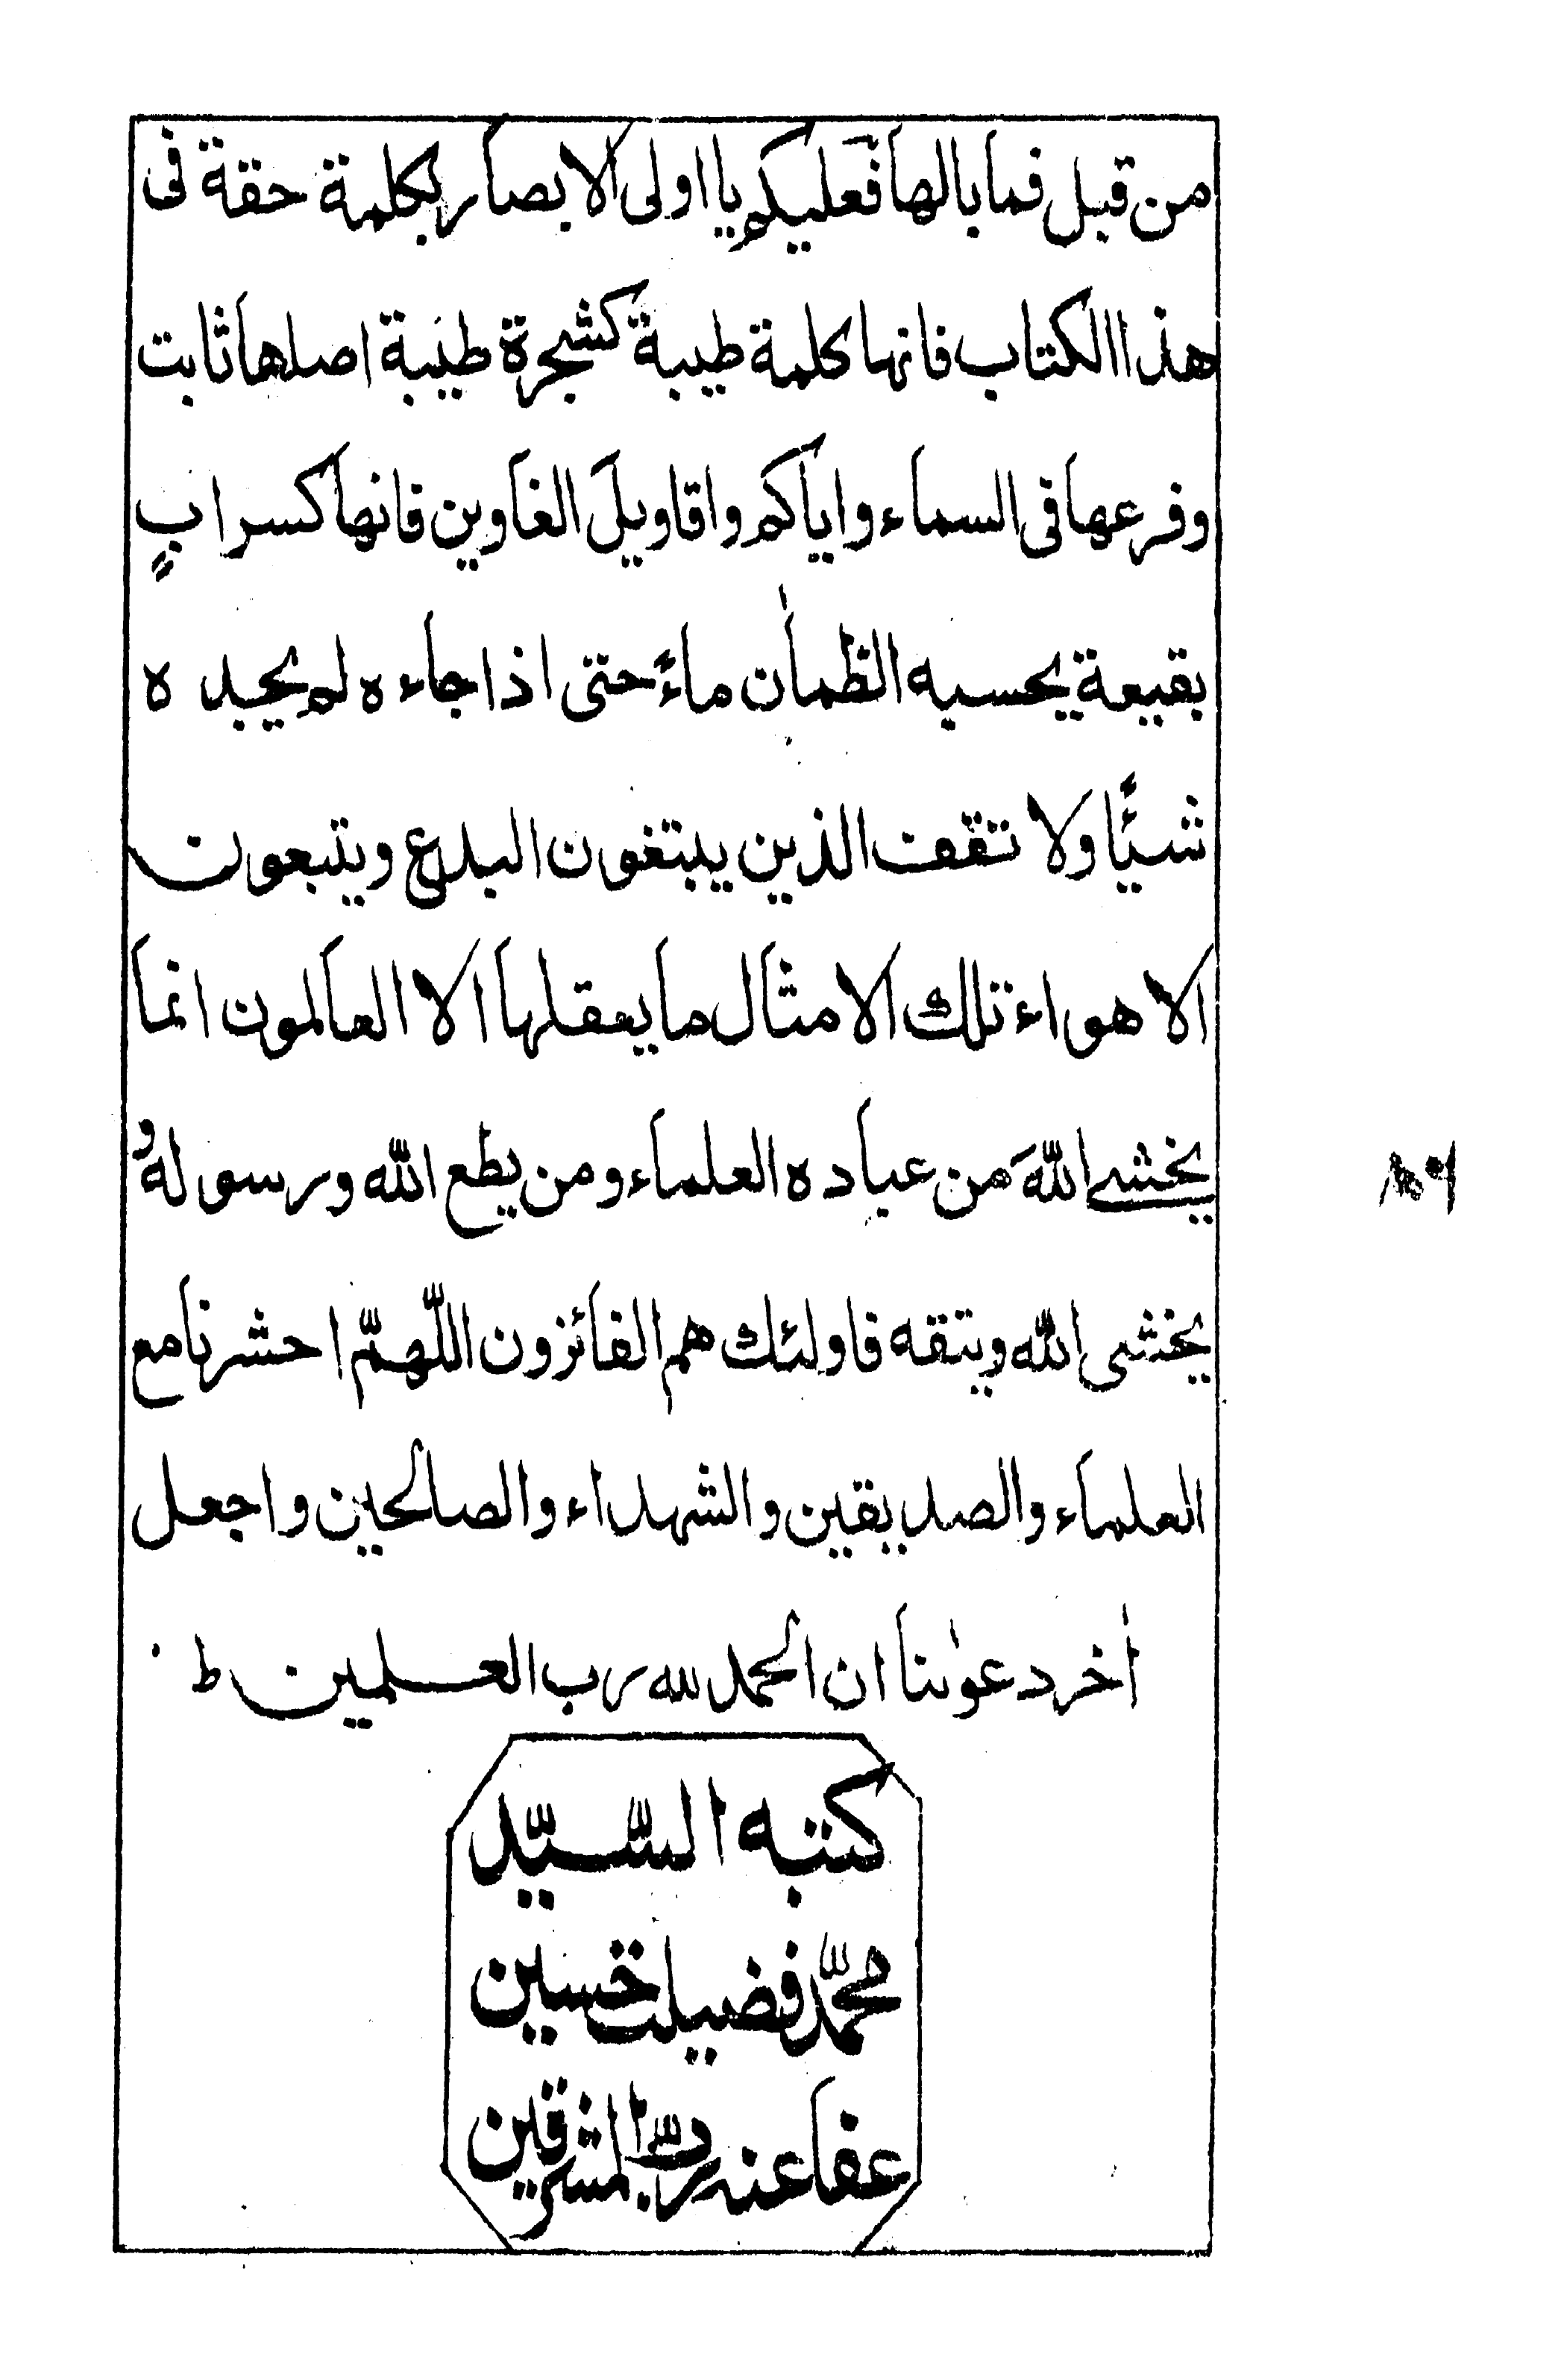 من قبل فما بالها فعليكم يا اولى الابصار بكلمة حقة فى
هذا الكتاب فانها كلمة طيبة كشجرة طيبة اصلها ثابت
وفرعها فى السماء واياكم واقاويلَ الغاوين فانها كسرابٍ
بقيعة يحسبه الظمأن ماءً حتى اذا جاءه لم يجده
شيئًا ولا تقف الذين يبتغون البدع ويتبعون
الاهواء تلك الامثال ما يعقلها الا العالمون انما
يخشے اللّٰهَ من عباده العلماء ومن يطع اللّٰه ورسولهُ
يخشى اللّٰه ويتقه فاولئك هم الفائزون اللّٰهمّ احشرنا مع
العلماء والصديقين والشهداء والصالحين واجعل
أخر دعوٰنا ان الحمد لله رب العلمين ط
كتبه السّيّد
محمّد فضيلت حسين
عفا عنه ربّ المشرقين